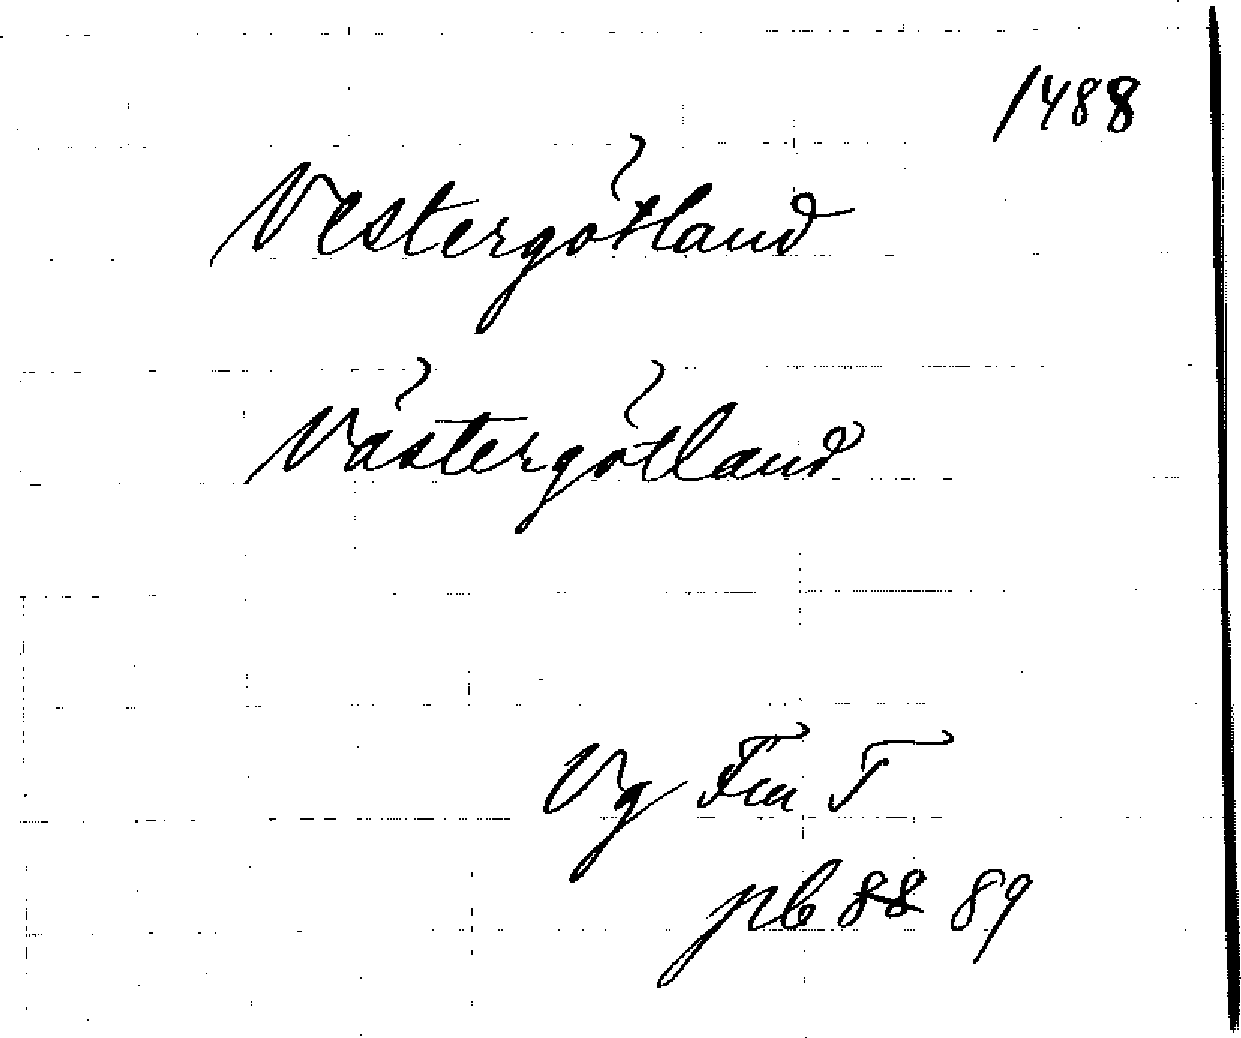 1488
Vestergötland
Västergötland
Vg Fra T
pb 88 89